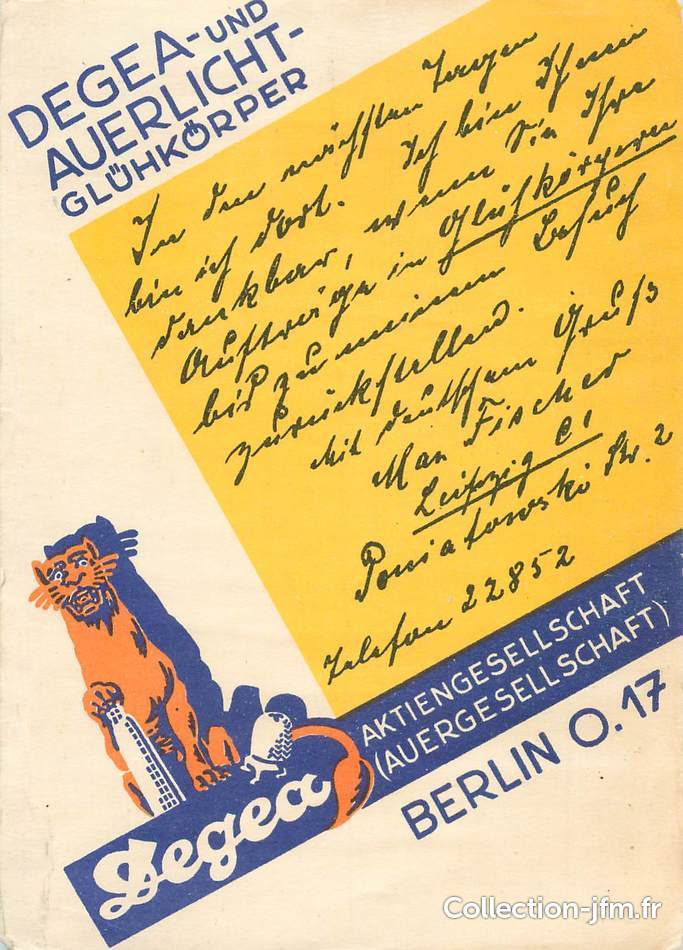 DEGEA- UND
AUERLICHT-
GLÜHKÖRPER
In den nächsten Tagen
bin ich dort. Ich bin Ihnen
dankbar, wenn Sie Ihre
Aufträge in Glühkörpern
bis zu meinem Besuch
zurückstellen.
Mit deutschem Gruß
Max Fischer
Leipzig C1
Poniatowski Str. 2
Telefon 22852
AKTIENGESELLSCHAFT
(AUERGESELLSCHAFT)
BERLIN O.17
Degea
Collection-jfm.fr